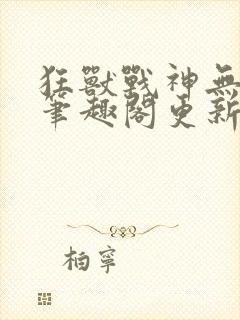 狂獸戰神無
筆趣閣更新
柏寧